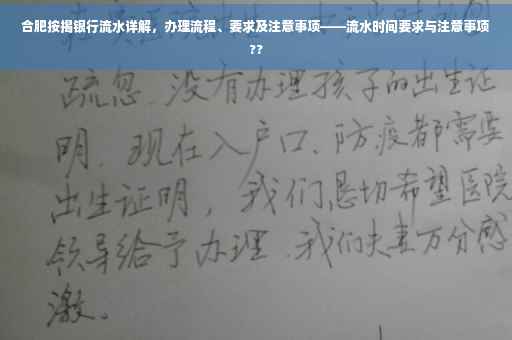 合肥按揭银行流水详解，办理流程、要求及注意事项——流水时间要求与注意事项
??
疏忽．没有办理孩子的出生证
明．现在入户口、防疫都需要
出生证明，我们恳切希望医院
领导给予办理．我们夫妻万分感
激。